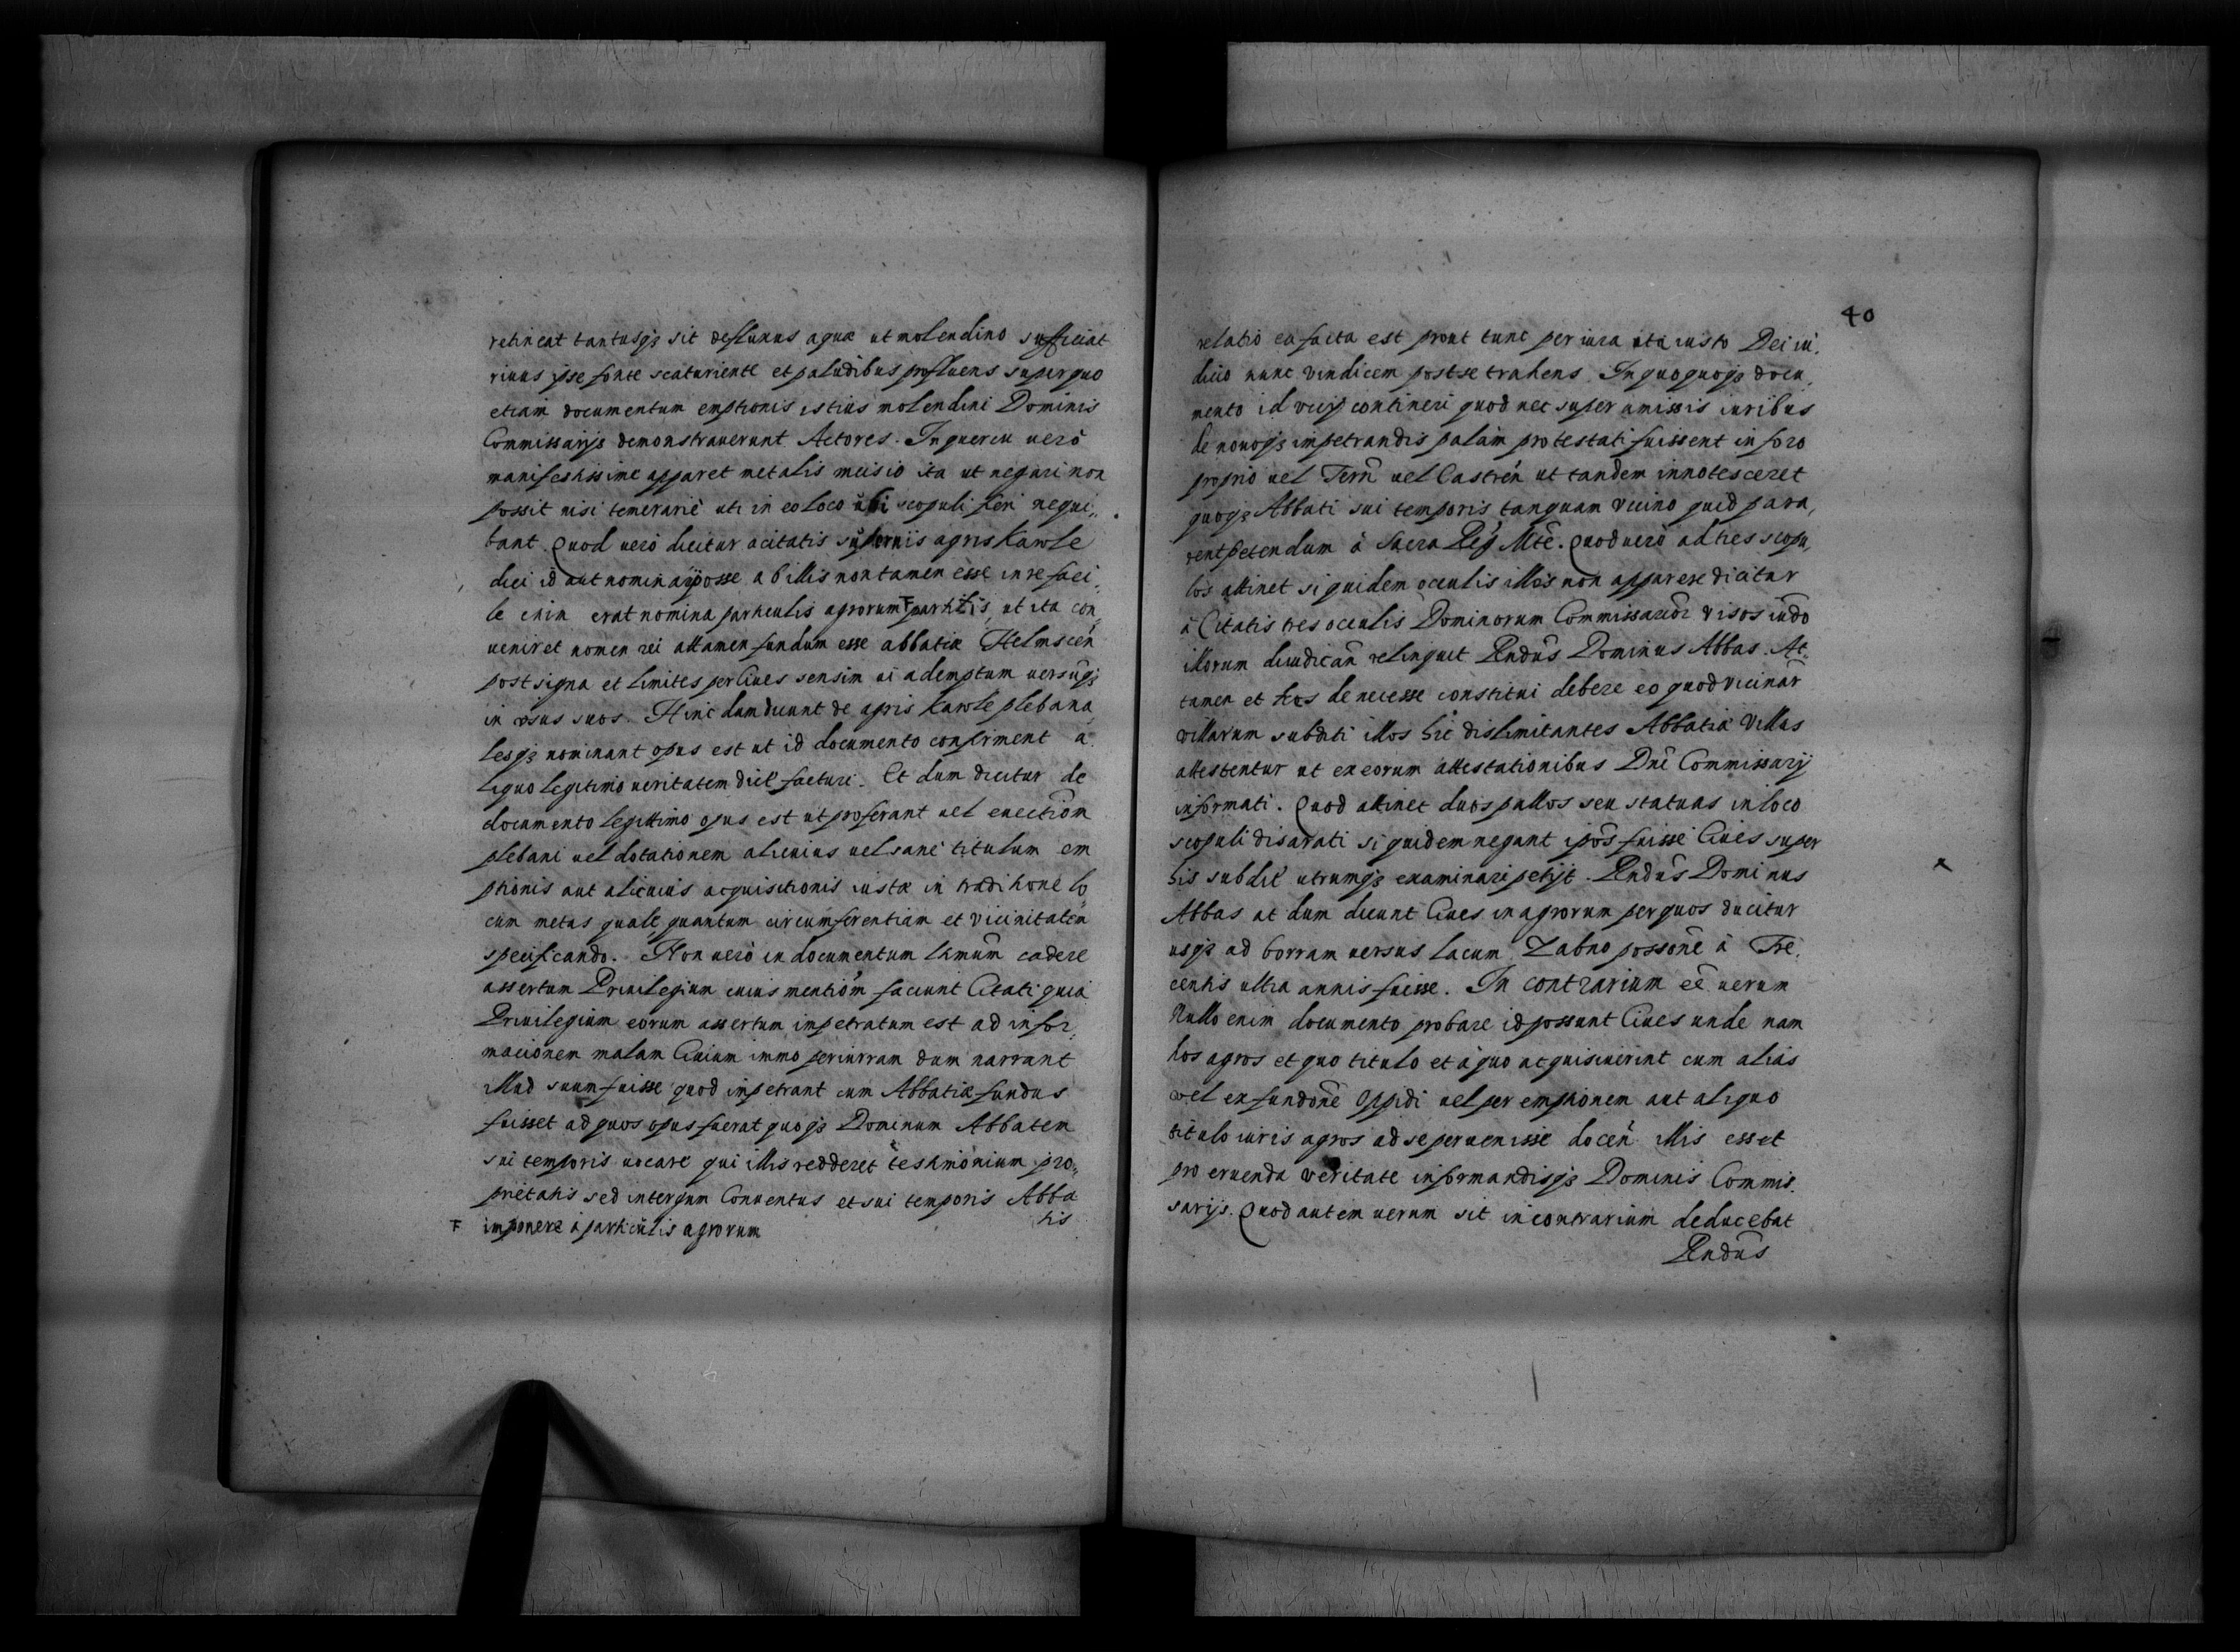 retineat tantusq₃ sit defluxus aquæ ut molendino sufficiat
riuus ipse fonte scaturiente et paludibus profluens super quo
etiam documentum emptionis istius molendini Dominis
Commissarijs demonstrauerunt Actores. In quercu uerò
manifestissime apparet metalis incisio ita ut negari non
possit nisi temerariè uti in eo loco ubi scopuli fieri nequi„
bant. Quod uerò dicitur à citatis supernis agris Karole
dici id aut nominari posse ab illis non tamen esse in re faci„
le enim erat nomina particulis agrorum F partitis, ut ita con„
ueniret nomen rei attamen fundum esse abbatiæ Helmscen
post signa et limites per Ciues sensim ui ademptum uersūq₃
in vsus suos. Hinc dum dicunt de agris Karole plebana„
lesq₃ nominant opus est ut id documento confirment a„
liquo legitimo ueritatem dict facturi. Et dum dicitur de
documento legittimo opus est ut proferant uel erectiōn
plebani uel dotationem alicuius uel sanè titulum em
ptionis aut alicuius acquisitionis iustæ in traditione lo„
cum metas quale, quantum circumferentiam et vicinitatem
specificando. Non uerò in documentum limūm cadere
assertum Priuilegium cuius mentiōm faciunt Citati quia
Priuilegium eorum assertum impetratum est ad infor„
macionem malam Ciuium immo periurram dum narrant
illud suum fuisse quod impetrant cum Abbatiæ fundus
fuisset ad quos opus fuerat quoq₃ Dominum Abbatem
sui temporis uocare qui illis redderet testimonium pro„
prietatis sed intergum Conuentus et sui temporis Abba
tis
F imponere à particulis agrorum
40
relatio ea facta est prout tunc per iura ita iusto Dei iu„
dicio nunc vindicem post se trahens. In quo quoq₃ docu„
mento id contineri quod nec super amissis iuribus
de nouoq₃ impetrandis palàm protestati fuissent in foro
proprio uel Terrn̄ uel Castrēn ut tandem innotesceret
quoq₃ Abbati sui temporis tanquam vicino quid para„
rent petendum à Sacra Reg Mtē. Quod uerò ad tres scopu„
los attinet siquidem occulis illos non apparere dicitur
à Citatis tres occulis Dominorum Commissarior̄ visos iūdo
illorum diiudicān relinquit Rndūs Dominus Abbas. At„
tamen et hos de necesse constitui debere eo quod vicinar̄
villarum subditi illos hic dislimitantes Abbatiæ villas
attestentur ut ex eorum attestationibus Dnī Commissarij
informati. Quod attinet duos pallos seu statuas in loco
scopuli disarati siquidem negant ipōs fuisse Ciues super
his subdit utrumq₃ examinari petijt. Rndūs Dominus
Abbas at dum dicunt Ciues in agrorum per quos ducitur
usq₃ ad borram uersus lacum Zabno possonē à Tre„
centis ultra annis fuisse. In contrarium eē uerum
Nullo enim documento probare id possunt Ciues unde nam
hos agros et quo titulo et à quo acquisiuerint cum aliàs
vel ex fundonē Oppidi uel per emptionem aut aliquo
titulo iuris agros ad se peruenisse docēn illis esset
pro eruenda veritate informandisq₃ Dominis Commis„
sarijs. Quod autem uerum sit in contrarium deducebat
Rndūs